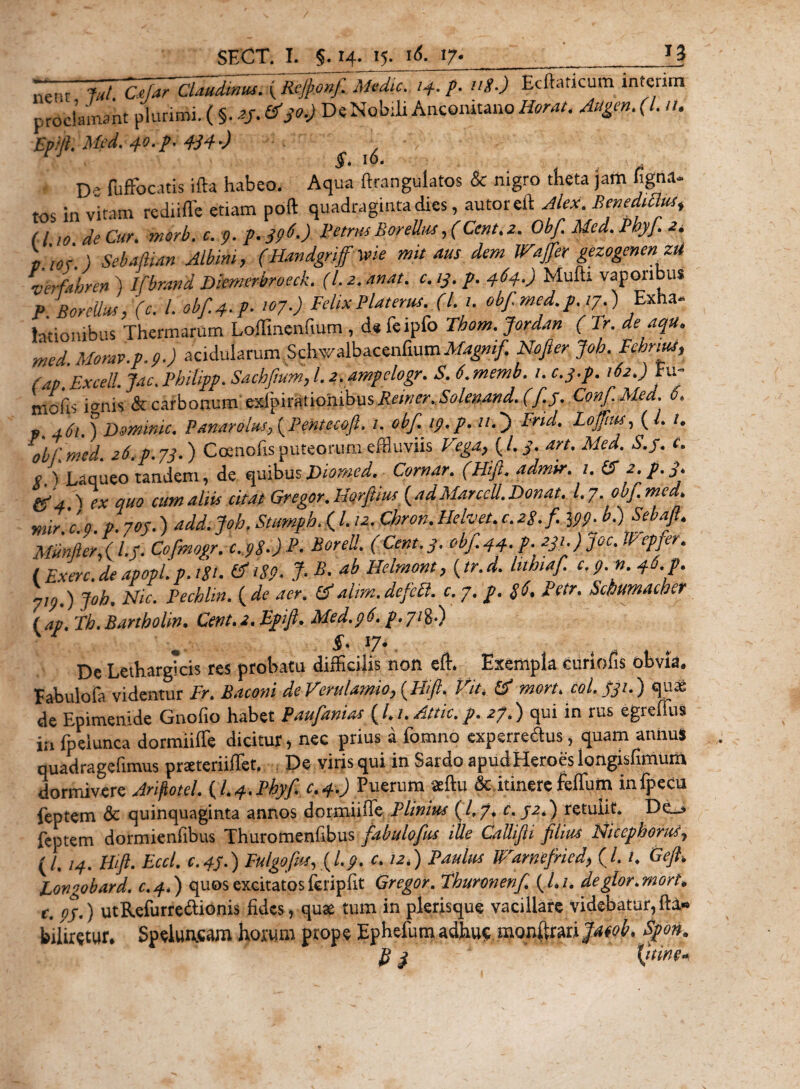 SECT. I. §. 14. 15. 16. 17. 13
nent, Jul. Cæsar Claudinus. (Respons. Medic. 14. p. 118.) Ecstaticum interim
proclamant plurimi. (§. 25. & 30.) De Nobili Anconitano Horat. Augen. (l. 11.
Epist. Med. 40. p. 434.)
§. 16.
De suffocatis ista habeo. Aqua strangulatos & nigro theta jam signa-
tos in vitam rediisse etiam post quadraginta dies, autor est Alex. Benedictus,
(l. 10. de Cur. morb. c. 9. p. 396.) Petrus Borellus, (Cent. 2. Obs. Med. Phys. 2.
p. 105.) Sebastian Albini, (Handgriff wie mit aus dem Wasser gezogenen zu
verfahren) Isbrand Diemerbroeck. (l. 2. anat. c. 13. p. 464.) Musti vaporibus
P. Borellus, (c. l. obs. 4. p. 107.) Felix Platerus. (l. 1. obs. med. p. 17.) Exha-
lationibus Thermarum Lossinensium, de seipso Thom. Jordan (Tr. de aqu.
med. Morav. p. 9.) acidularum Schwalbacensium Magnif. Noster Joh. Fehrius,
(ap. Excell. Jac. Philipp. Sachsium, l. 2. ampelogr. S. 6. memb. 1. c. 3. p. 162.) Fu-
mosis ignis & carbonum exspirationibus Reiner. Solenand. (s. 5. Cons. Med. 6.
p. 461.) Dominic. Panarolus, (Pentecost. 1. obs. 19. p. 11.) Frid. Lossius, (l. 1.
obs. med. 26. p. 73.) Cœnosis puteorum effluviis Vega, (l. 3. art. Med. S. 5. c.
8.) Laqueo tandem, de quibus Diomed. Cornar. (Hist. admir. 1. & 2. p. 3.
& 4.) ex quo cum aliis citat Gregor. Horstius (ad Marcell. Donat. l. 7. obs. med.
mir. c. 9. p. 705.) add. Joh. Stumph. (l. 12. Chron. Helvet. c. 28. f. 399. b.) Sebast.
Münster, (l. 5. Cosmogr. c. 98.) P. Borell. (Cent. 3. obs. 44. p. 231.) Joc. Wepfer.
(Exerc. de apopl. p. 181. & 189. J. B. ab Helmont, (tr. d. lithias. c. 9. n. 46. p.
719.) Joh. Nic. Pechlin. (de aer. & alim. defect. c. 7. p. 86. Petr. Schumacher
(ap. Th. Bartholin. Cent. 2. Epist. Med. 96. p. 718.)
§. 17.
De Lethargicis res probatu difficilis non est. Exempla curiosis obvia.
Fabulosa videntur Fr. Baconi de Verulamio, (Hist. Vit. & mort. col. 531.) quæ
de Epimenide Gnosio habet Pausanias (l. 1. Attic. p. 27.) qui in rus egressus
in spelunca dormiisse dicitur, nec prius a somno experrectus, quam annus
quadragesimus præteriisset. De viris qui in Sardo apud Heroes longissimum
dormivere Aristotel. (l. 4. Phys. c. 4.) Puerum æstu & itinere fessum in specu
septem & quinquaginta annos dormiisse Plinius (l. 7. c. 52.) retulit. De
septem dormiensibus Thuromensibus fabulosus ille Callisti filius Nicephorus,
(l. 14. Hist. Eccl. c. 45.) Fulgosus, (l. 9. c. 12.) Paulus Warnefried, (l. 1. Gest.
Longobard. c. 4.) quos excitatos scripsit Gregor. Thuronens. (l. 1. de glor. mort.
c. 95.) ut Resurrectionis fides, quæ tum in plerisque vacillare videbatur, sta-
biliretur. Speluncam horum prope Ephesum adhuc monstrari Jacob. Spon.
B 3 (itine-